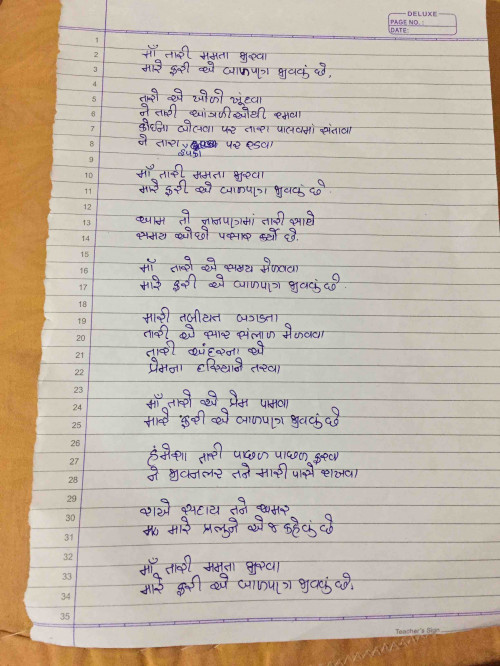 DELUXE
PAGE NO. :
DATE:
1
2
3
4
5
6
7
8
9
10
11
12
13
14
15
16
17
18
19
20
21
22
23
24
25
26
27
28
29
30
31
32
33
34
35
માઁ તારી મમતા જીરવા
મારે ફરી એ બાળપણ જીવવું છે.
તારો એ ખોળો ખૂંદવા
ને તારી આંગળીઓથી રમવા
કોઈના બોલવા પર તારા પાલવમાં સંતાવા
ને તારા પર રડવા
ઠપકા
માઁ તારી મમતા જીરવા
મારે ફરી એ બાળપણ જીવવું છે.
આમ તો નાનપણમાં તારી સાથે
સમય ઓછો પસાર કર્યો છે.
માઁ તારો એ સમય મેળવવા
મારે ફરી એ બાળપણ જીવવું છે.
મારી તબીયત બગડતા
તારી એ સાર સંભાળ મેળવવા
તારી અંદરના એ
પ્રેમના દરિયાને તરવા
માઁ તારો એ પ્રેમ પામવા
મારે ફરી એ બાળપણ જીવવું છે
હંમેશા તારી પાછળ પાછળ ફરવા
ને જીવનભર તને મારી પાસે રાખવા
રાખે સદાય તને અમર
મારે પ્રભુને એ જ કહેવું છે
માઁ તારી મમતા જીરવા
મારે ફરી એ બાળપણ જીવવું છે.
Teacher's Sign